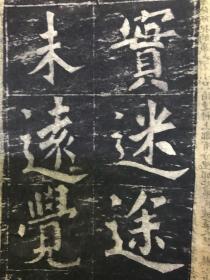 實迷途
未遠覺